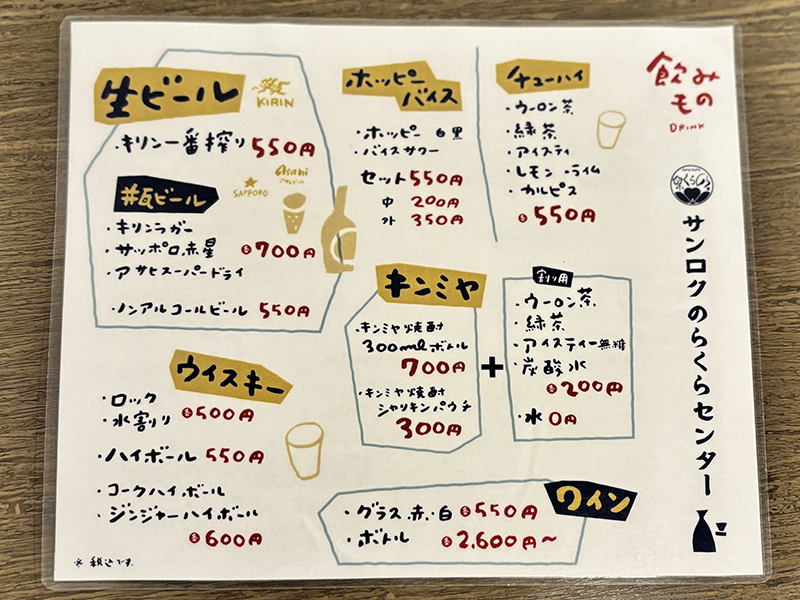 飲み
もの
DRINK
サンロクのらくらセンター
生ビール
KIRIN
・キリン一番搾り 550円
瓶ビール
SAPPORO
Asahi
・キリンラガー
・サッポロ赤星 各700円
・アサヒスーパードライ
・ノンアルコールビール 550円
ホッピー
バイス
・ホッピー 白黒
・バイスサワー
セット550円
中 200円
外 350円
チューハイ
・ウーロン茶
・緑茶
・アイスティ
・レモン・ライム
・カルピス
各550円
キンミヤ
・キンミヤ焼酎
300mlボトル
700円
・キンミヤ焼酎
シャリキンパウチ
300円
+
割り用
・ウーロン茶
・緑茶
・アイスティー無糖
・炭酸水
各200円
・水 0円
ウイスキー
・ロック
・水割り 各500円
・ハイボール 550円
・コークハイボール
・ジンジャーハイボール
各600円
ワイン
・グラス 赤・白 各550円
・ボトル 各2,600円〜
※税込です。